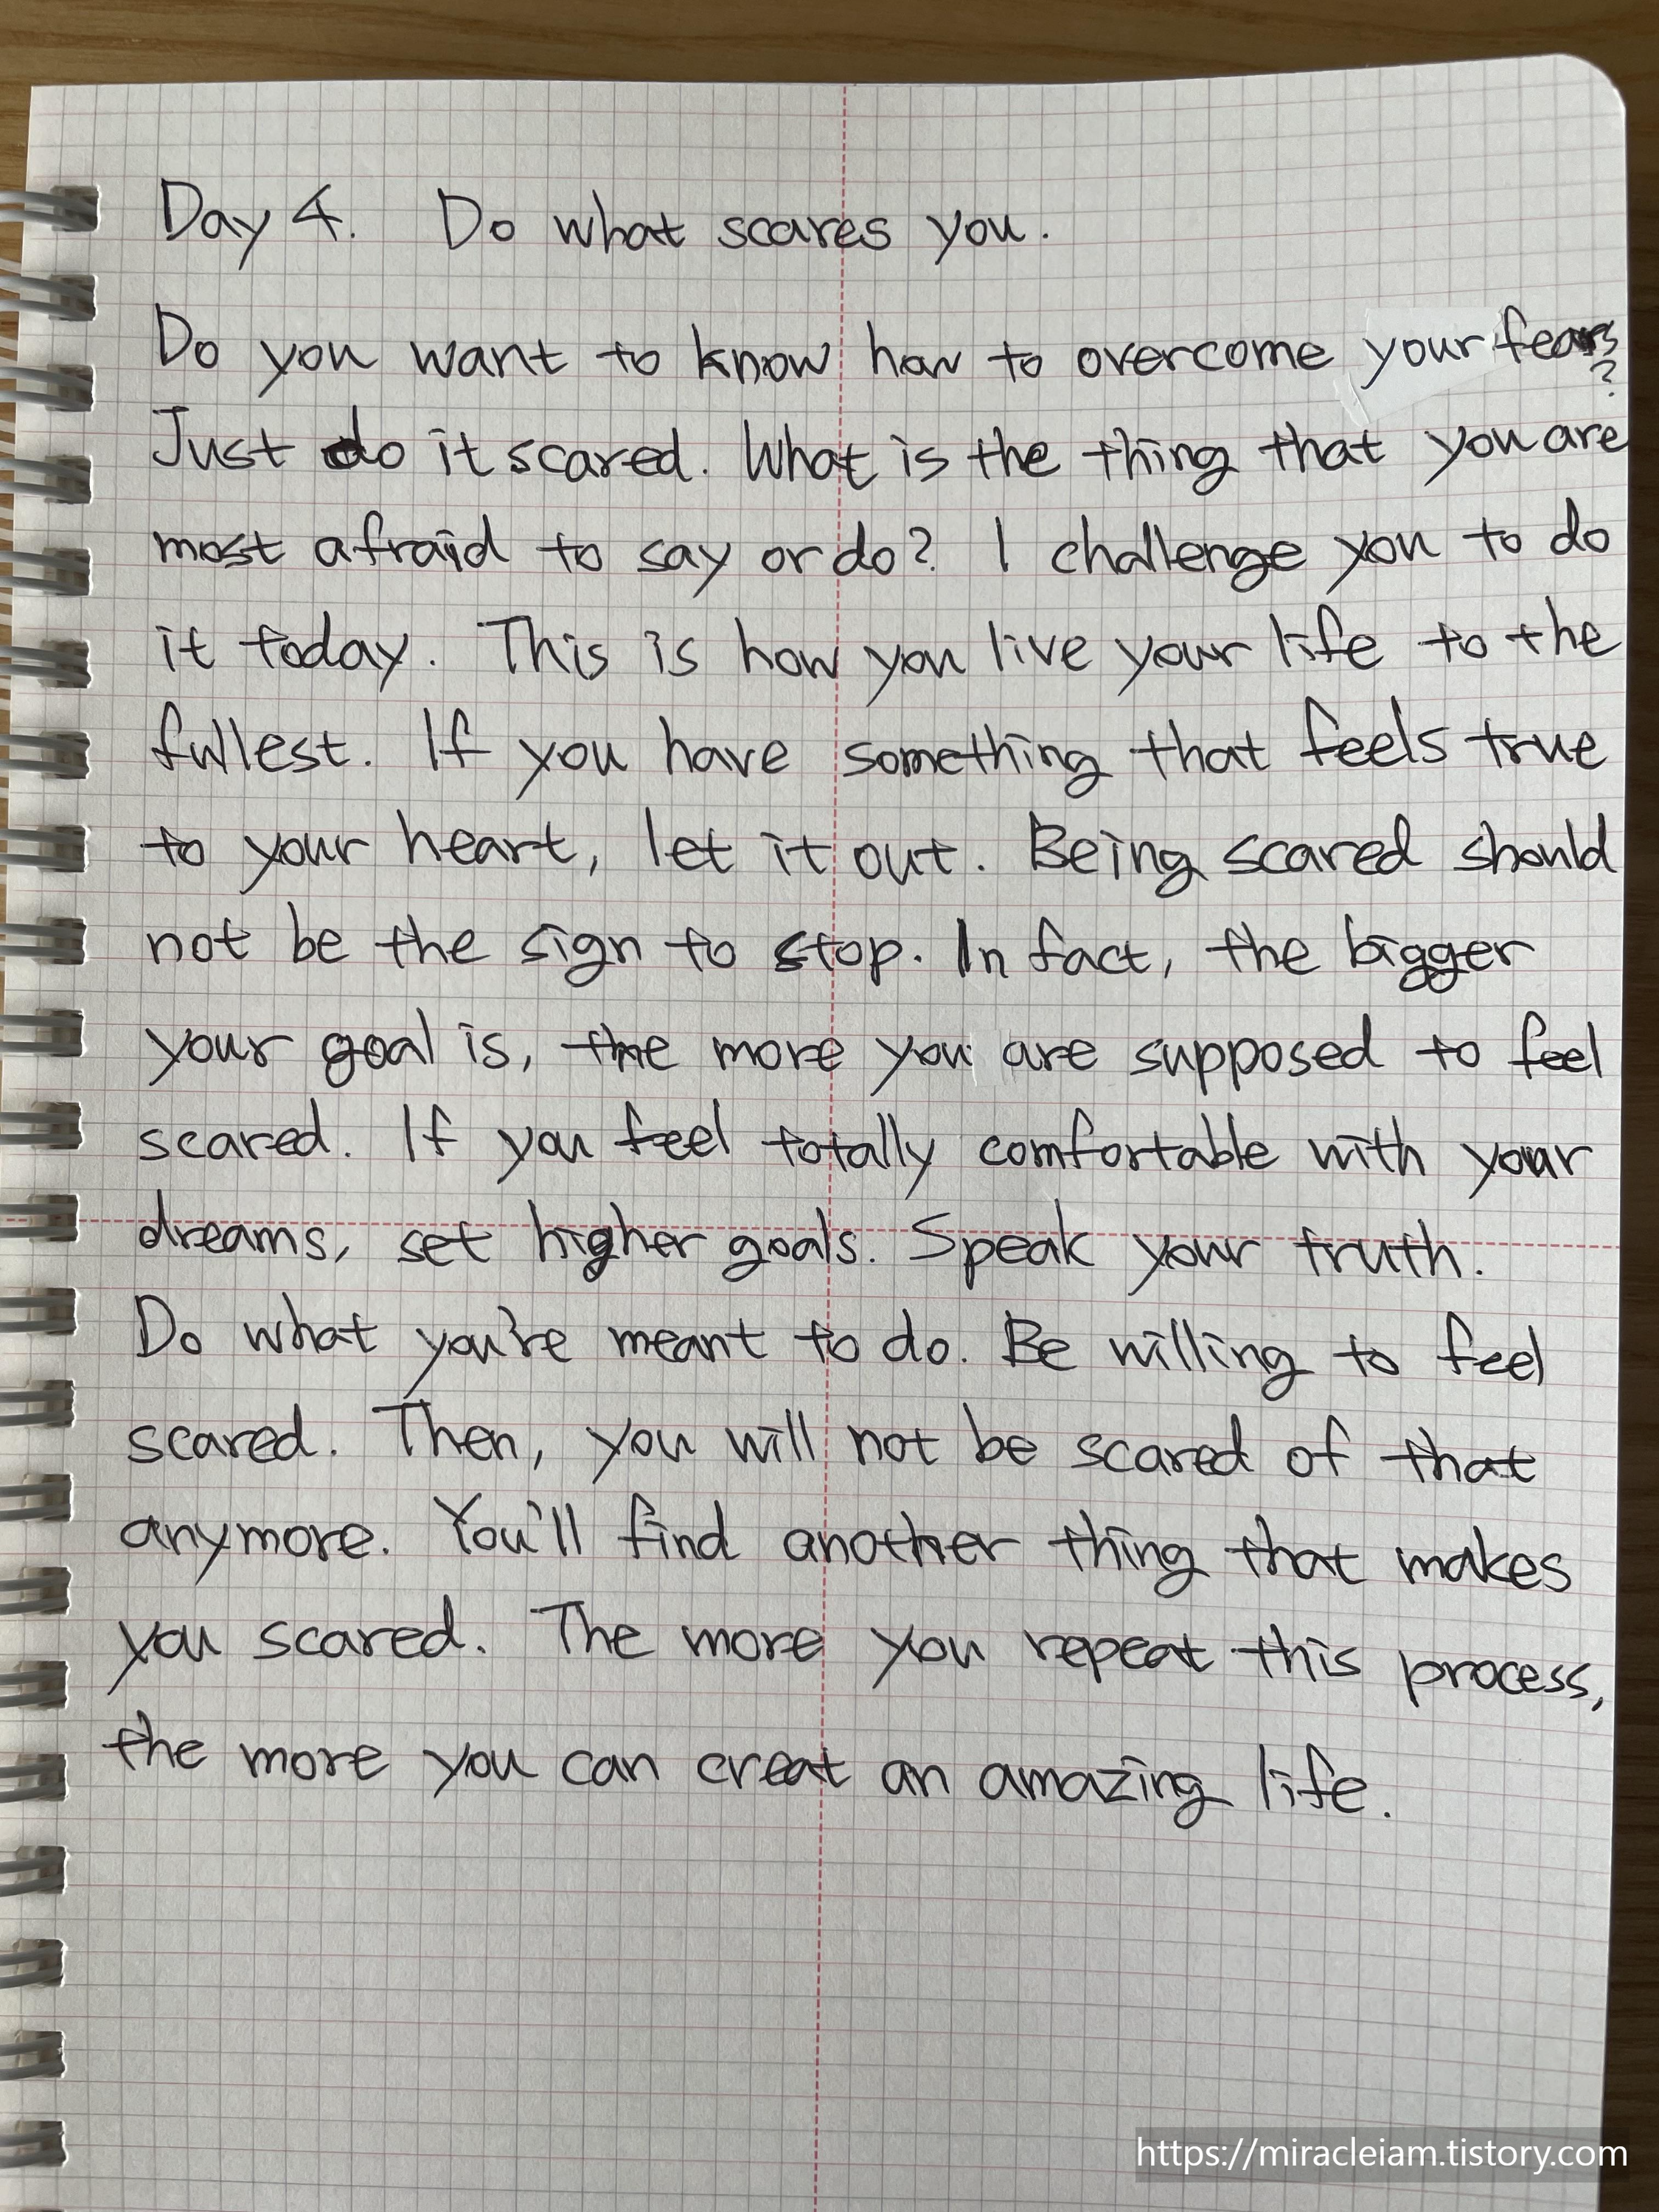 Day 4. Do what scares you.
Do you want to know how to overcome your fears?
Just do it scared. What is the thing that you are
most afraid to say or do? I challenge you to do
it today. This is how you live your life to the
fullest. If you have something that feels true
to your heart, let it out. Being scared should
not be the sign to stop. In fact, the bigger
your goal is, the more you are supposed to feel
scared. If you feel totally comfortable with your
dreams, set higher goals. Speak your truth.
Do what you're meant to do. Be willing to feel
scared. Then, you will not be scared of that
anymore. You'll find another thing that makes
you scared. The more you repeat this process,
the more you can creat an amazing life.
https://miracleiam.tistory.com